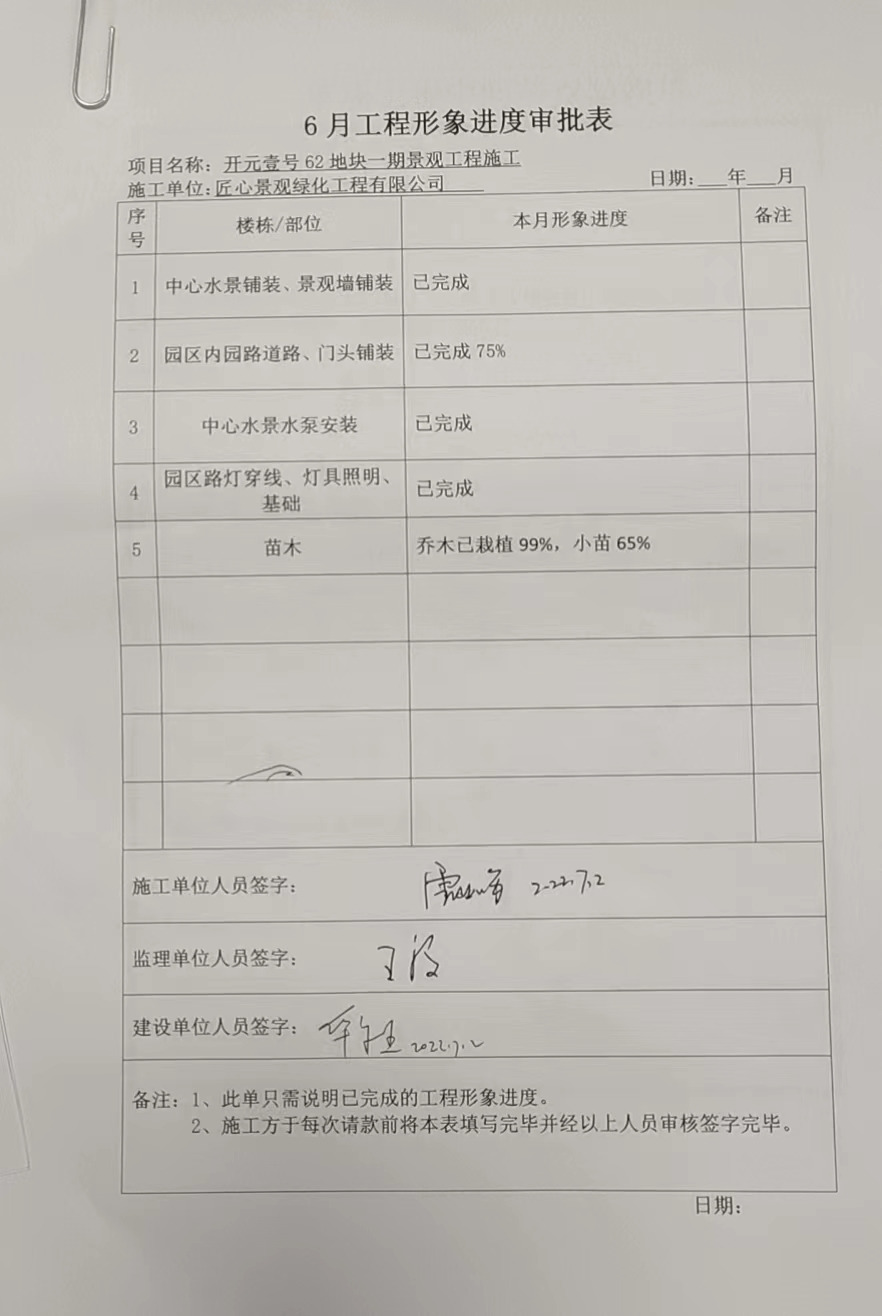 6月工程形象进度审批表
项目名称：开元壹号62地块一期景观工程施工
施工单位：匠心景观绿化工程有限公司 日期：___年___月
序号 楼栋/部位 本月形象进度 备注
1 中心水景铺装、景观墙铺装 已完成
2 园区内园路道路、门头铺装 已完成75%
3 中心水景水泵安装 已完成
4 园区路灯穿线、灯具照明、
基础 已完成
5 苗木 乔木已栽植99%，小苗65%
施工单位人员签字： 2022.7.2
监理单位人员签字： 王波
建设单位人员签字： 2022.7.2
备注：1、此单只需说明已完成的工程形象进度。
2、施工方于每次请款前将本表填写完毕并经以上人员审核签字完毕。
日期：